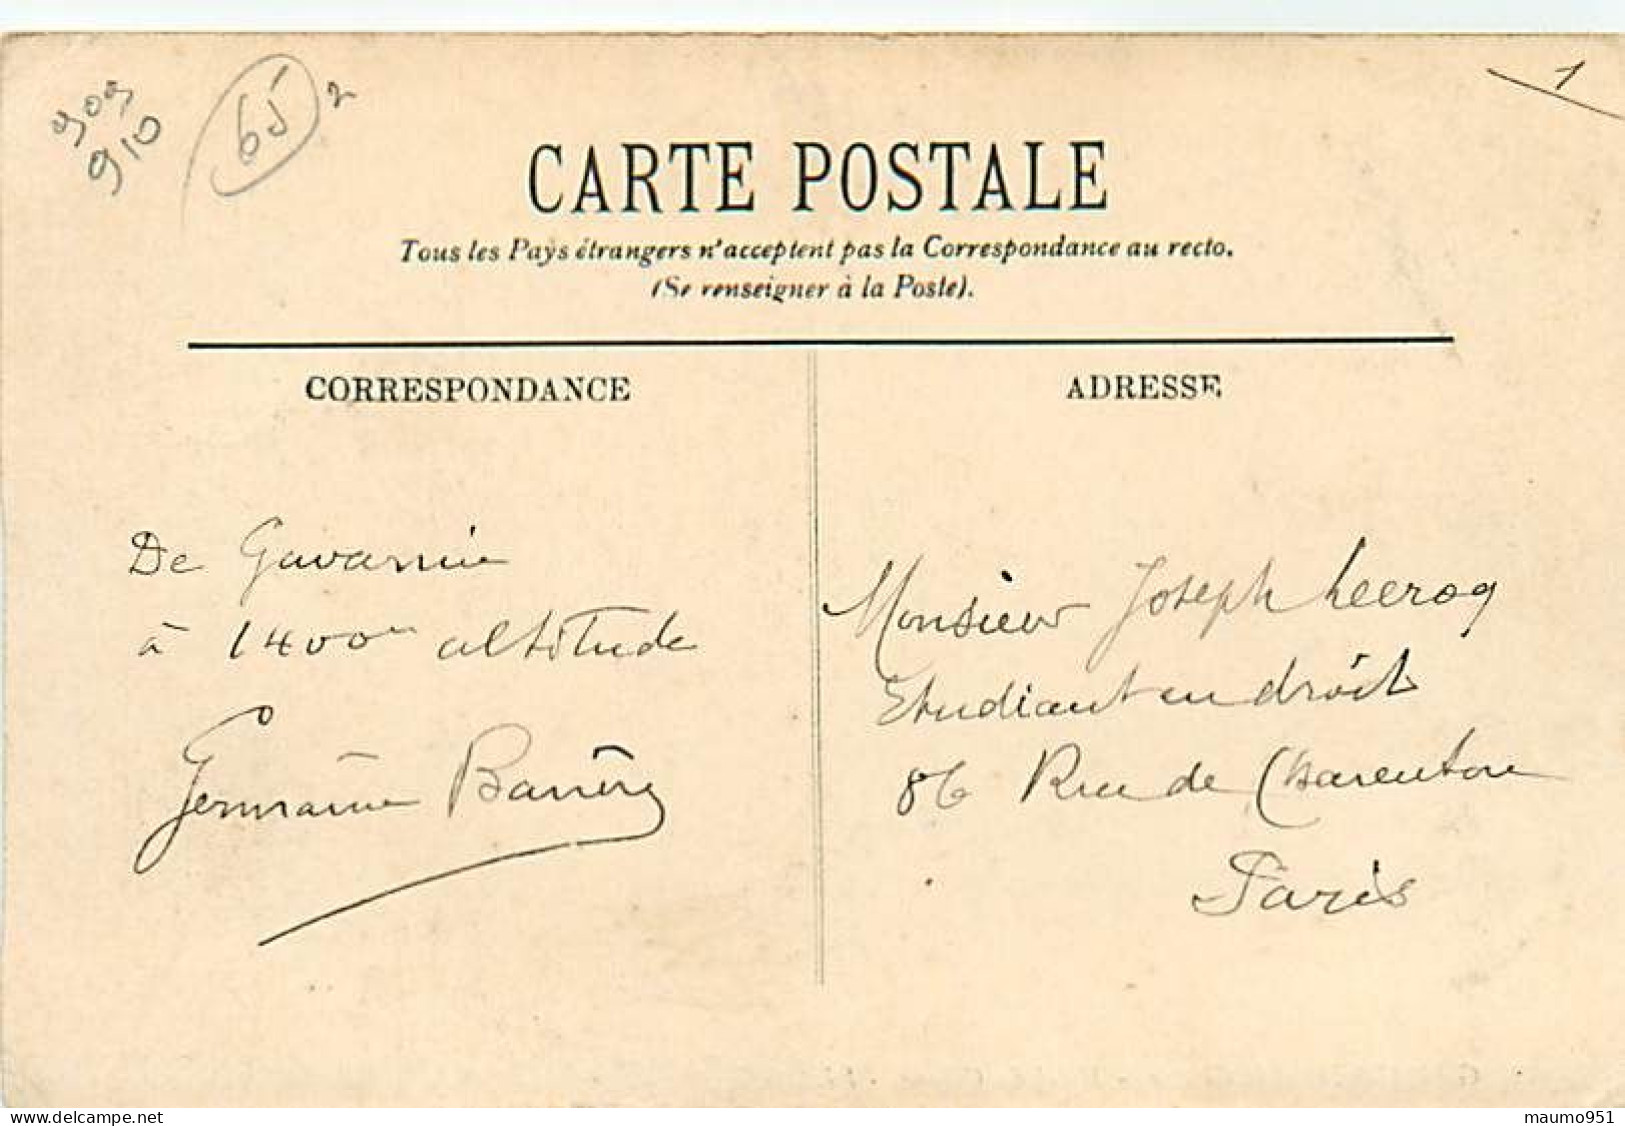 909
910
65
2
1
CARTE POSTALE
Tous les Pays étrangers n'acceptent pas la Correspondance au recto.
(Se renseigner à la Poste).
CORRESPONDANCE
ADRESSE
De Gavarnie
à 1400m altitude
Germaine Barrère
Monsieur Joseph Lecroq
Etudiant en droit
86 Rue de Charenton
Paris
delcampe.net
maumo951